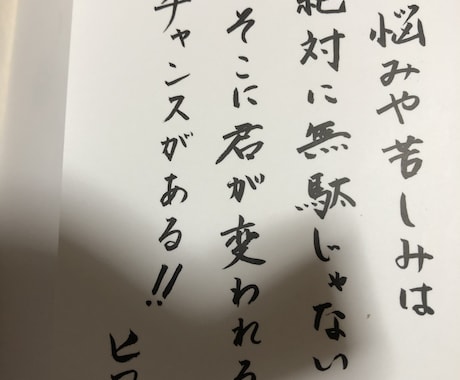 悩みや苦しみは
絶対に無駄じゃない
そこに君が変われる
チャンスがある!!
ヒロ